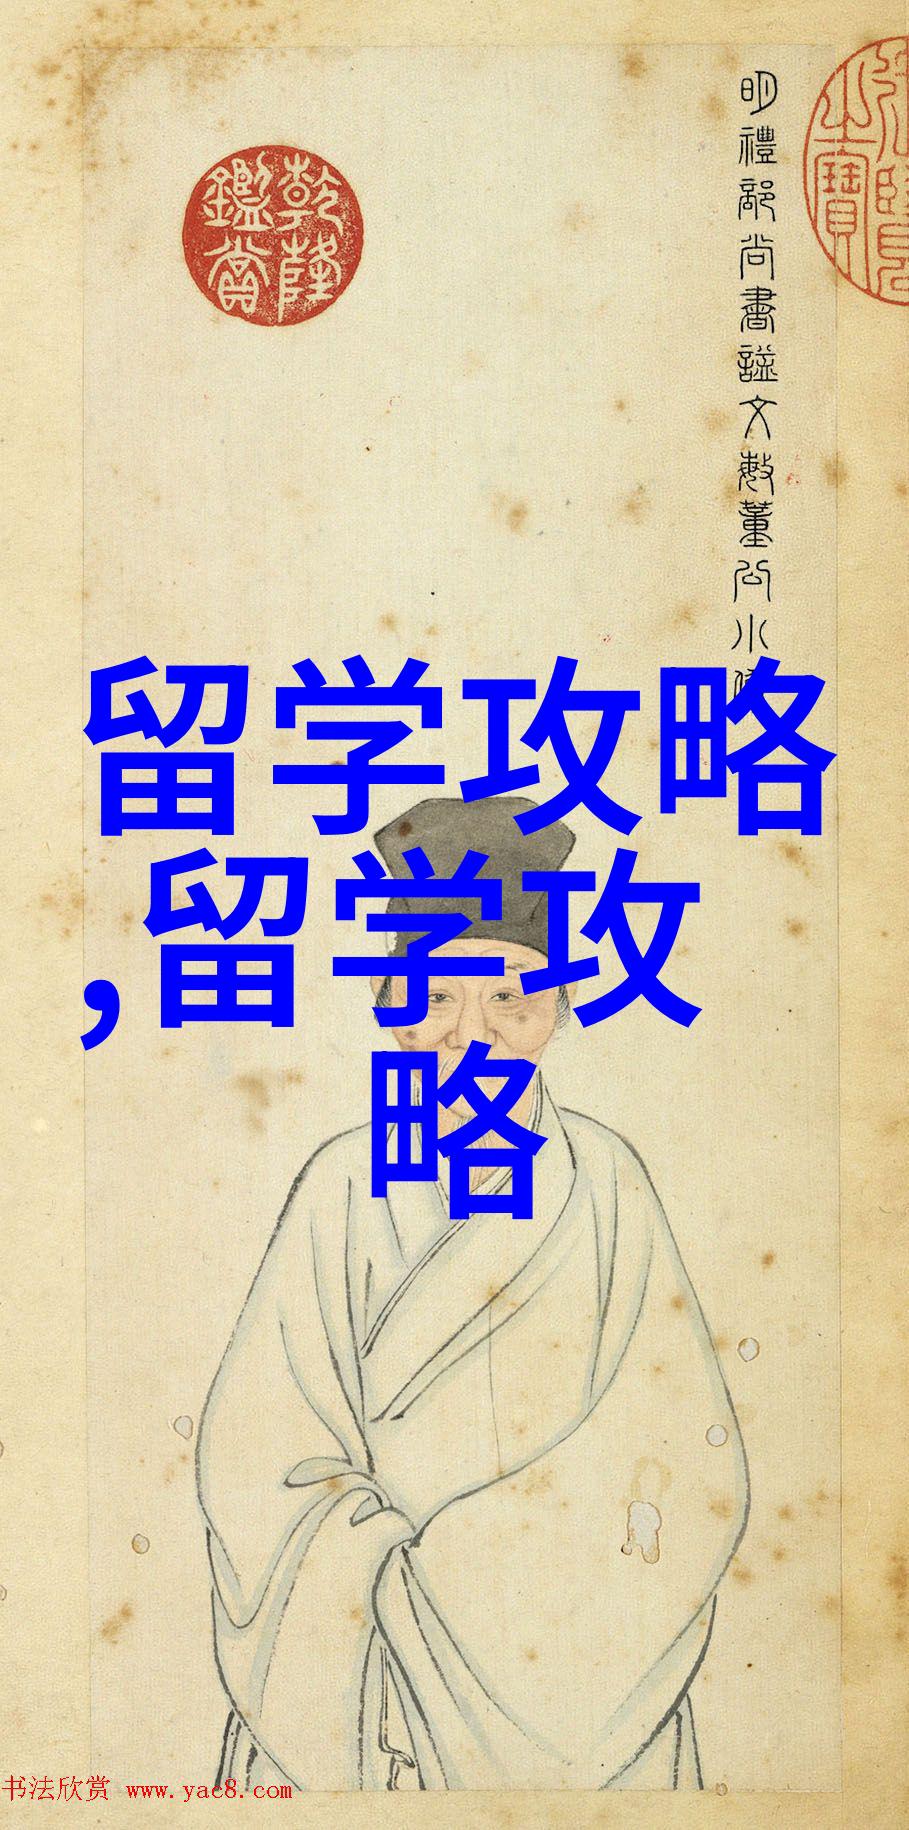 明禮部尚書謚文敏董公小像
乾隆
鑑賞
留学攻略
,留学攻
略
书法欣赏 www.yac8.com